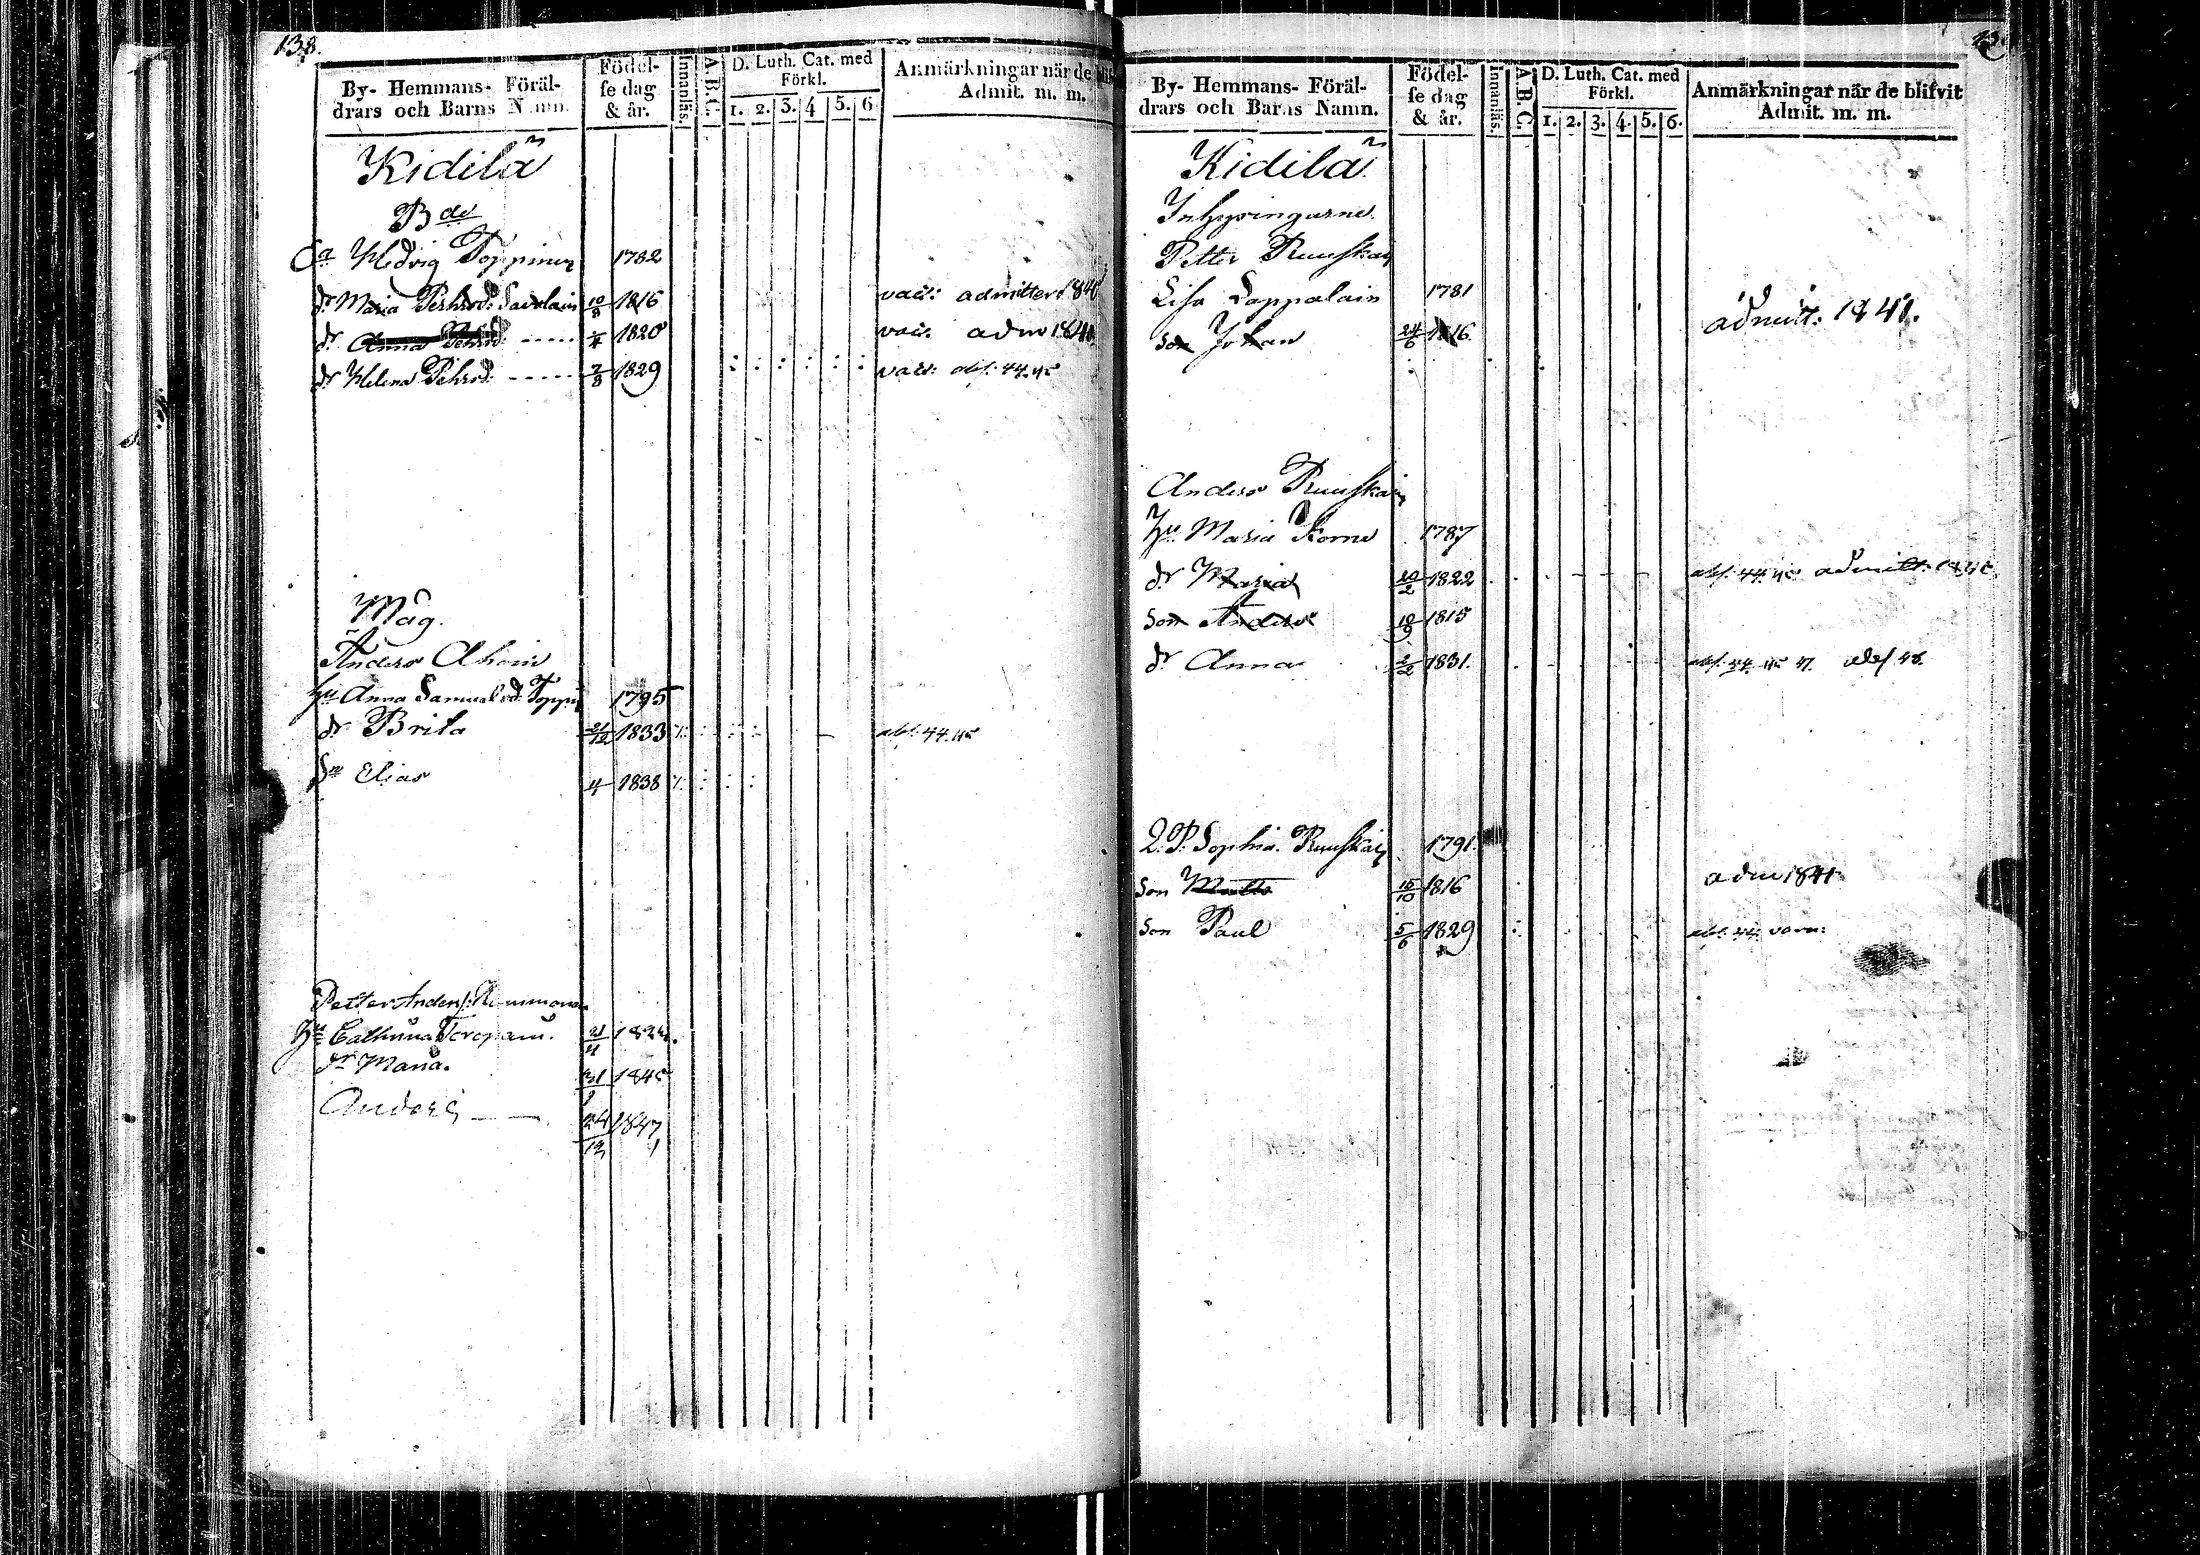 138.
By- Hemmans- Föräl-
drars och Barns Namn.
Födel-
se dag
& år.
Innanläs.
A.B.C.
D. Luth. Cat. med
Förkl.
1. 2. 3. 4 5. 6
Anmärkningar når de
Admit. m. m.
Kidilä
B de
Hedvig Toppinen 1782
dr Maria Pehrsd: Savolain 10/8 1816 admitter 1840
dr Anna Pehrsd: 1820 adm 1841
dr Helena Pehrsd: 7/8 1829 abs: 44.45
Måg.
Anders Ahoin
hu Anna Samuelsd: Toppin 1795
dr Brita 21/12 1833 abs: 44.45
Sn Elias /4 1838
Petter Anders:
Hu Cathrina 21/4
dr Maria. 31 1845
Anders 24/12 1847
By- Hemmans- Föräl-
drars och Barns Namn.
Födel-
se dag
& år.
Innanläs.
A.B.C.
D. Luth. Cat. med
Förkl.
1. 2. 3. 4. 5. 6.
Anmärkningar når de blifvit
Admit. m. m.
Kidilä
Inhysingarne.
Petter Ruuskain
Lisa Lappalain 1781
son Johan 24/6 1816. admitt: 1841.
Anders Ruuskain
Hu Maria 1787
dr Maria 20/2 1822 abs: 44.45 admitt:
son Anders 18/9 1815
dr Anna 2/2 1831. abs: 44. 45 47. abs 48.
Q. P. Sophia Ruuskain 1791.
son Matts 15/10 1816 adm 1841
son Paul 5/6 1829 abs: 44